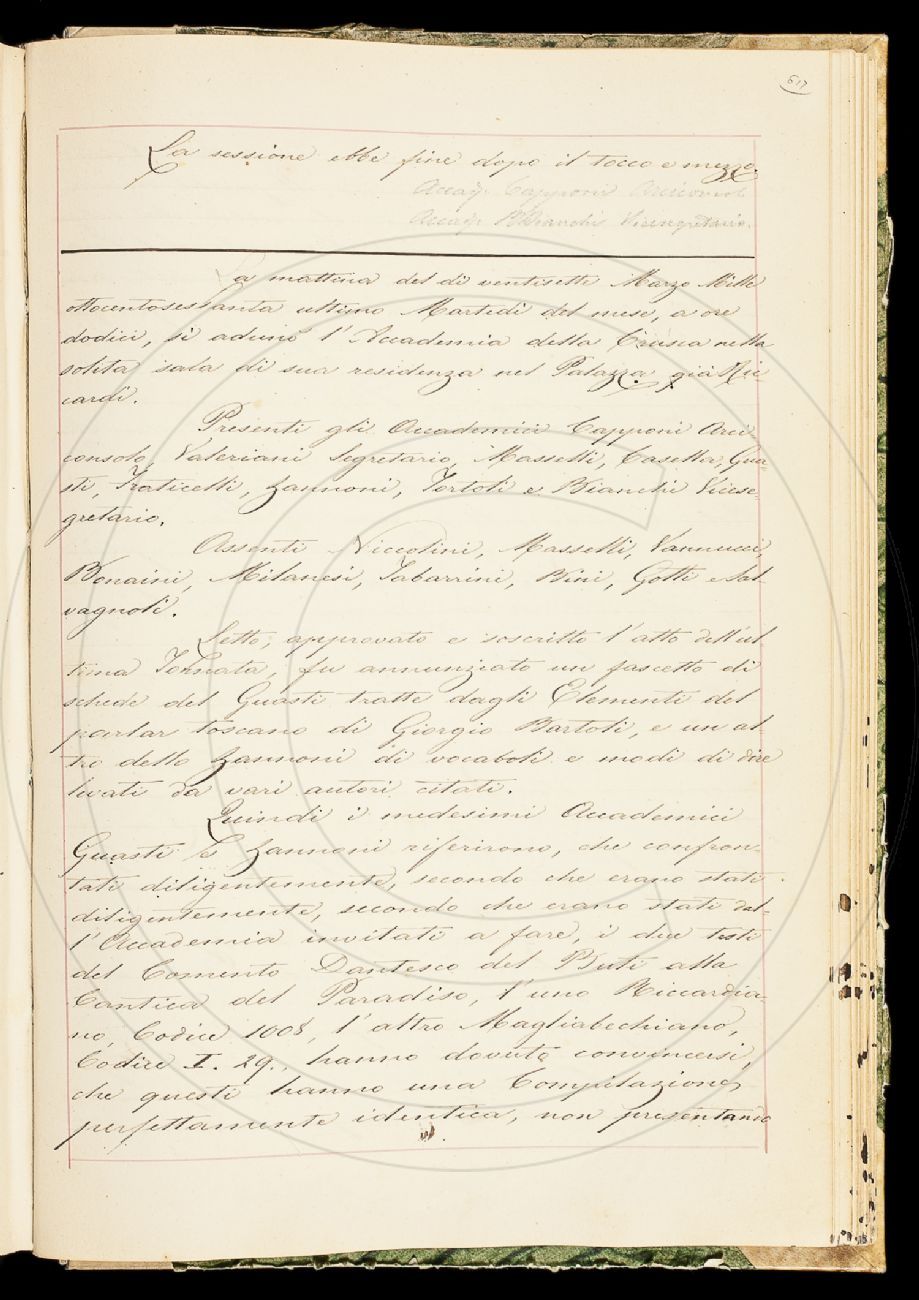 617
La sessione ebbe fine dopo il tocco e mezzo.
Accad. Capponi Arciconsolo
Accad. B Bianchi Vicesegretario.
La mattina del dì ventisette Marzo Mille
ottocentosessanta ultimo Martedì del mese, a ore
dodici, si adunò l'Accademia della Crusca nella
solita sala di sua residenza nel Palazzo già Ric-
cardi.
Presenti gli Accademici Capponi Arci-
consolo, Valeriani Segretario, Masselli, Casella, Gua-
sti, Fraticelli, Zannoni, Tortoli e Bianchi Vicese-
gretario.
Assenti Niccolini, Masselli, Vannucci,
Bonaini, Milanesi, Tabarrini, Bini, Gotti e Sal-
vagnoli.
Letto, approvato e soscritto l'atto dell'ul-
tima Tornata, fu annunziato un fascetto di
schede del Guasti tratte dagli Elementi del
parlar toscano di Giorgio Bartoli, e un al-
tro dello Zannoni di vocaboli e modi di dire
levati da vari autori citati.
Quindi i medesimi Accademici
Guasti e Zannoni riferirono, che confron-
tati diligentemente, secondo che erano stati
diligentemente, secondo che erano stati dal-
l'Accademia invitati a fare, i due testi
del Comento Dantesco del Buti alla
Cantica del Paradiso, l'uno Riccardia-
no, Codice 1008, l'altro Magliabechiano,
Codice I. 29., hanno dovuto convincersi,
che questi hanno una Compilazione
perfettamente identica, non presentando